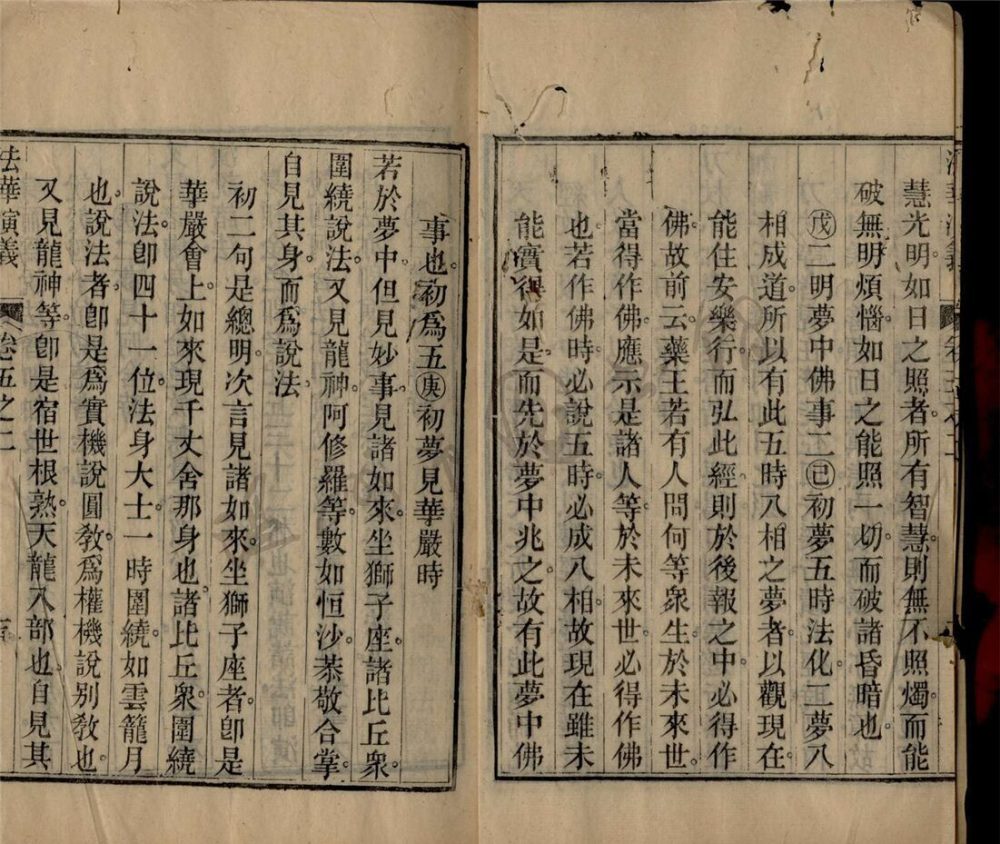 慧光明如日之照者所有智慧則無不照燭而能
破無明煩惱如日之能照一切而破諸昏暗也。
戊二明夢中佛事二己初夢五時法化二夢八
相成道。所以有此五時八相之夢者以觀現在
能住安樂行而弘此經則於後報之中必得作
佛故前云藥王若有人問何等衆生於未來世。
當得作佛應示是諸人等於未來世必得作佛
也若作佛時必說五時必成八相故現在雖未
能實得如是而先於夢中兆之故有此夢中佛
事也初爲五庚初夢見華嚴時
若於夢中但見妙事見諸如來。坐獅子座。諸比丘衆。
圍繞說法又見龍神。阿修羅等。數如恒沙。恭敬合掌。
自見其身。而爲說法。
初二句是總明。次言見諸如來。坐獅子座者。卽是
華嚴會上。如來現千丈舍那身也。諸比丘衆。圍繞
說法。卽四十一位法身大士。一時圍繞。如雲籠月
也。說法者。卽是爲實機說圓教。爲權機說別教也。
又見龍神等。卽是宿世根熟。天龍八部也。自見其
法華演義 卷五之二